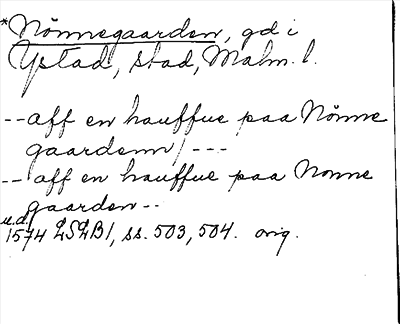 *Nönnegaarden, gd i
Ystad, stad, Malm. l.
-- aff en hauffue paa Nönne
gaardenn / ---
-- aff en hauffue paa Nonne
gaarden --
u.d.
1574 LSLB1, ss. 503, 504. orig.